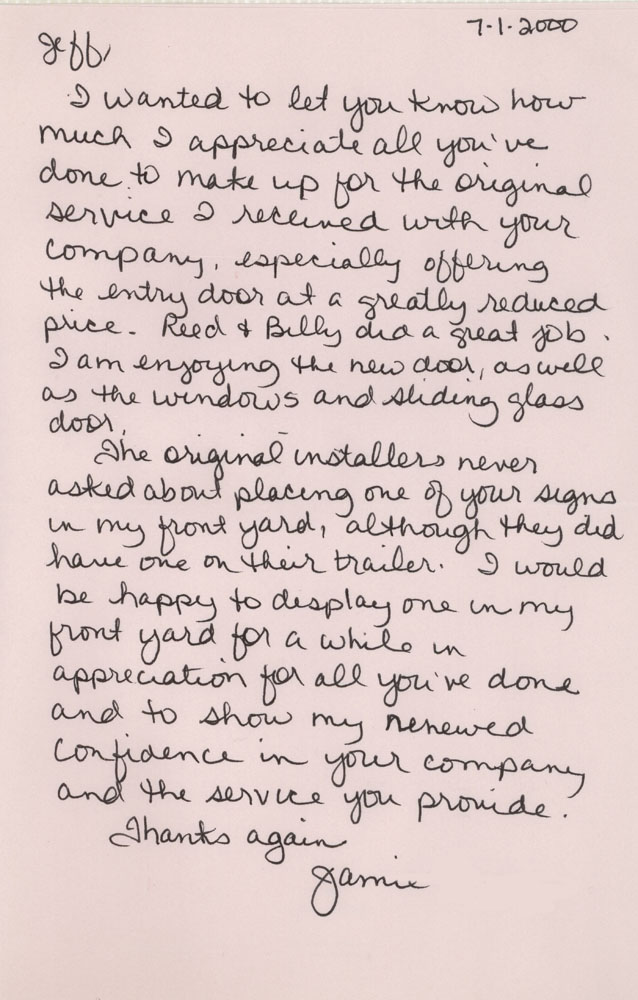 7-1-2000
Jeff,
I wanted to let you know how
much I appreciate all you've
done to make up for the original
service I received with your
company, especially offering
the entry door at a greatly reduced
price. Reed & Billy did a great job.
I am enjoying the new door, as well
as the windows and sliding glass
door.
The original installers never
asked about placing one of your signs
in my front yard, although they did
have one on their trailer. I would
be happy to display one in my
front yard for a while in
appreciation for all you've done
and to show my renewed
confidence in your company
and the service you provide.
Thanks again
Jamie